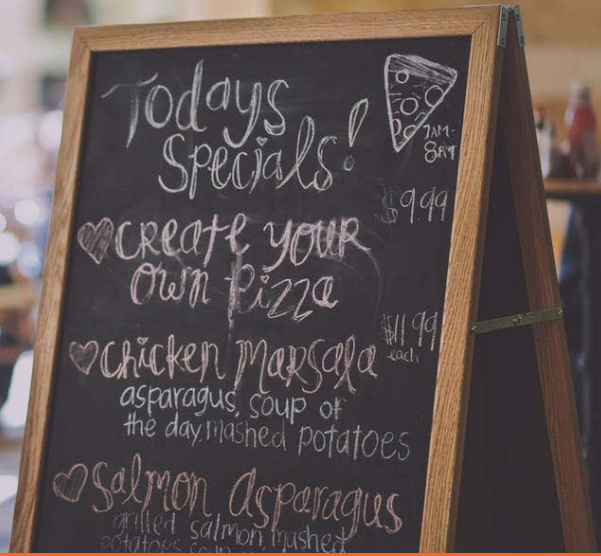 Todays
Specials!
7AM-
8PM
$9.99
CREATE YOUR
Own Pizza
$11.99
each
Chicken Marsala
asparagus, soup of
the day, mashed potatoes
Salmon Asparagus
grilled salmon, mashed
potatoes